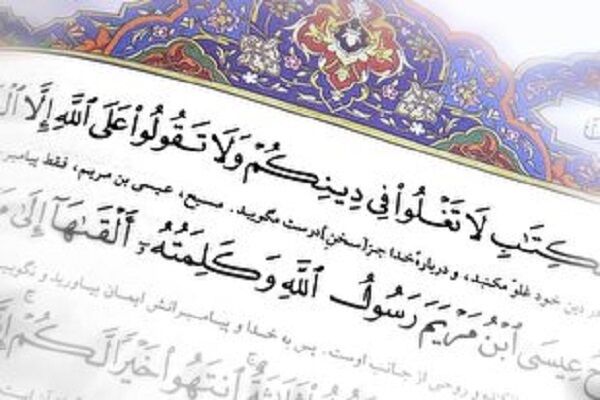 ـكِتَٰبِ لَا تَغْلُوا۟ فِى دِينِكُمْ وَلَا تَقُولُوا۟ عَلَى ٱللَّهِ إِلَّا
در دین خود غلوّ مکنید، و دربارهٔ خدا جز [سخن] درست مگویید. مسیح، عیسی بن مریم، فقط پیامبر
عِيسَى ٱبْنُ مَرْيَمَ رَسُولُ ٱللَّهِ وَكَلِمَتُهُۥٓ أَلْقَىٰهَآ إِلَىٰ
و روحی از جانب اوست. پس به خدا و پیامبرانش ایمان بیاورید و نگویید
ثَلَٰثَةٌ ٱنتَهُوا۟ خَيْرًا لَّكُمْ